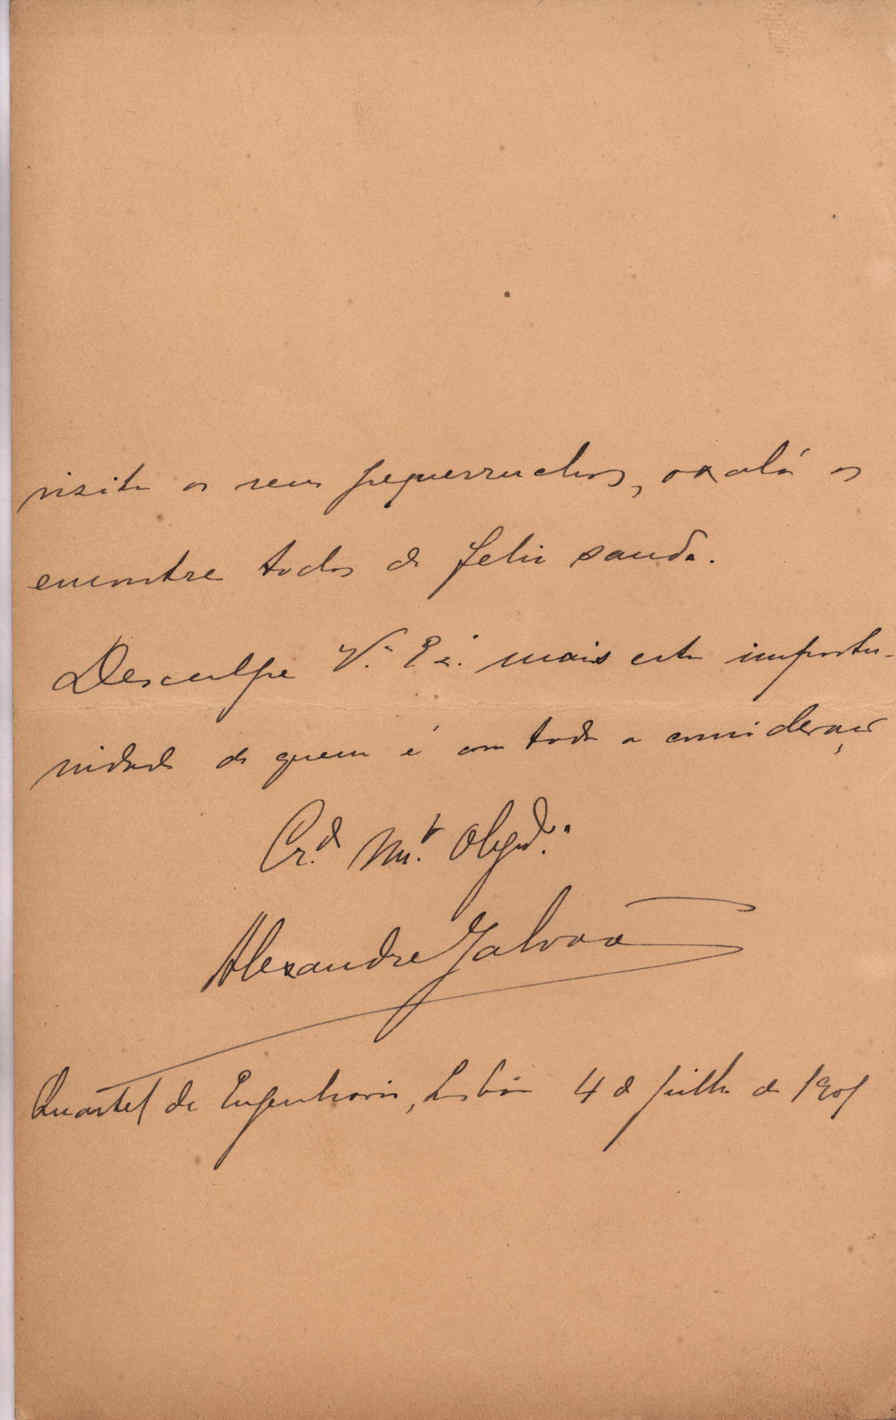 visite os seus pequerruchos, oxalá os
encontre todos de feliz saude.
Desculpe V.ª Ex.ª mais esta importu-
nidade de quem é com toda a consideração
Cr.do Mt.º Obgd.º
Alexandre Galvão
Quartel de Engenharia, Lisboa 4 de Julho de 1901